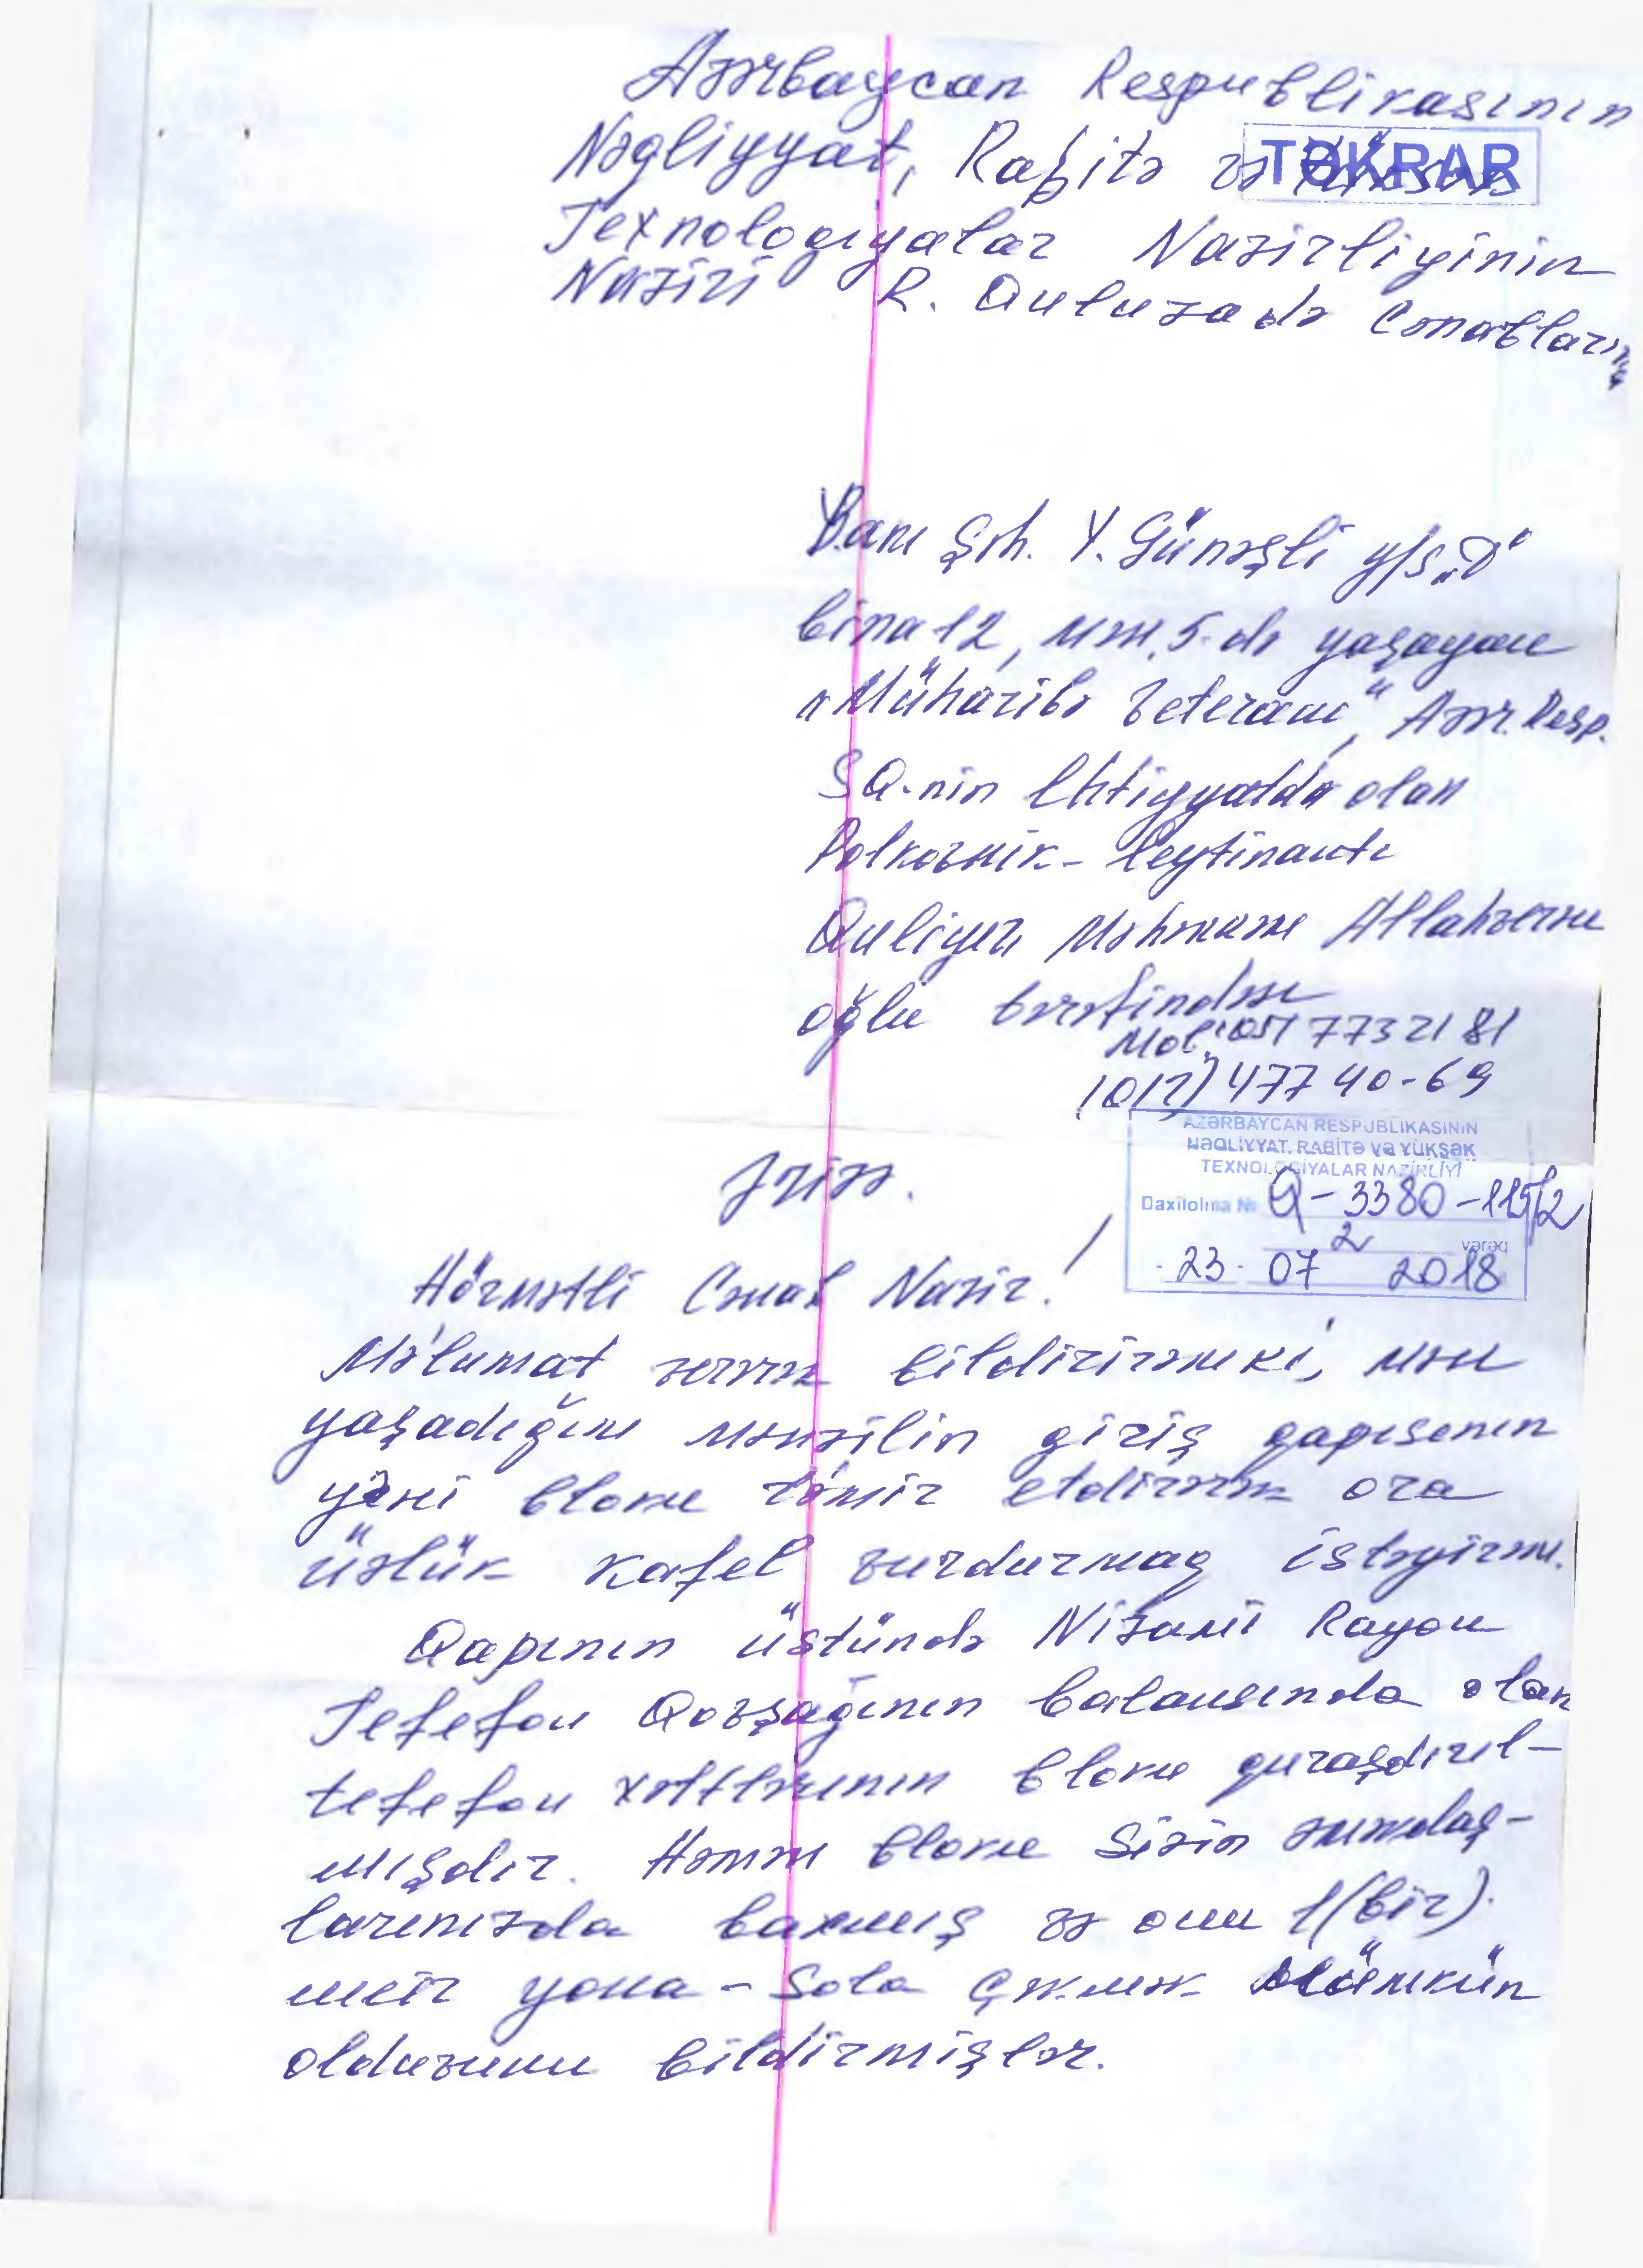 Azərbaycan Respublikasının
Nəqliyyat, Rabitə və Yüksək
TƏKRAR
Texnologiyalar Nazirliyinin
Naziri R. Quluzadə Cənablarına
Bakı şəh. Y. Günəşli y/s „D"
bina 12, mən. 5-də yaşayan
„Müharibə Veteranı", Azər. Resp.
SQ-nin Ehtiyyatda olan
Polkovnik-leytinantı
Quliyev Məhman Allahverən
oğlu tərəfindən
Mob: 051 773 21 81
(012) 477 40-69
AZƏRBAYCAN RESPUBLİKASININ
NƏQLİYYAT, RABİTƏ VƏ YÜKSƏK
TEXNOLOGİYALAR NAZİRLİYİ
Daxilolma № Q-3380-115/2
2 vərəq
23. 07 2018
Ərizə.
Hörmətli Cənab Nazir!
Mə'lumat verirəm bildirirəmki, mən
yaşadığım mənzilin giriş qapısının
yə'ni bloku tə'mir etdirirəm ora
üzlük kafel vurdurmaq istəyirəm.
Qapının üstündə Nizami Rayon
Telefon Qovşağının balansında olan
telefon xəttlərinin bloku quraşdırıl-
mışdır. Həmən bloku Sizin əməkdaş-
larınızda baxmış və onu 1(bir)
metr yona-sola çəkmək mümkün
olduvunu bildirmişlər.